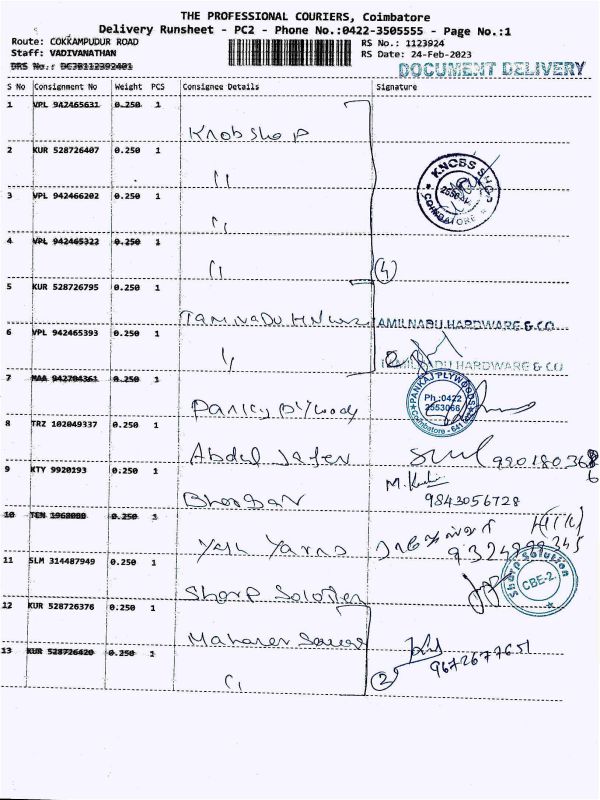 THE PROFESSIONAL COURIERS, Coimbatore
Delivery Runsheet - PC2 - Phone No.:0422-3505555 - Page No.:1
Route: COKKAMPUDUR ROAD
RS No.: 1123924
Staff: VADIVANATHAN
RS Date: 24-Feb-2023
DRS No.: DCJB112392401
DOCUMENT DELIVERY
S No Consignment No Weight PCS Consignee Details Signature
1 VPL 942465631 0.250 1 Knob shop
2 KUR 528726407 0.250 1 "
KNOBS SHOP
COIMBATORE
3 VPL 942466202 0.250 1 "
4 VPL 942465322 0.250 1 "
4
5 KUR 528726795 0.250 1 Tamilnadu
TAMILNADU HARDWARE & CO
6 VPL 942465393 0.250 1 "
2
TAMILNADU HARDWARE & CO
7 MAA 942704361 0.250 1
PANKAJ PLYWOODS
Ph.:0422
2553066
Coimbatore - 641
8 TRZ 102049337 0.250 1 Abdul Jafer
9 KTY 9920193 0.250 1
9843056728
10 0.250 1 Yash Yarns
11 SLM 314487949 0.250 1 Sharp Solution
Sharp Solution
CBE-2.
12 KUR 528726376 0.250 1 Mahaveer
9672677651
13 KUR 528726420 0.250 1 "
2